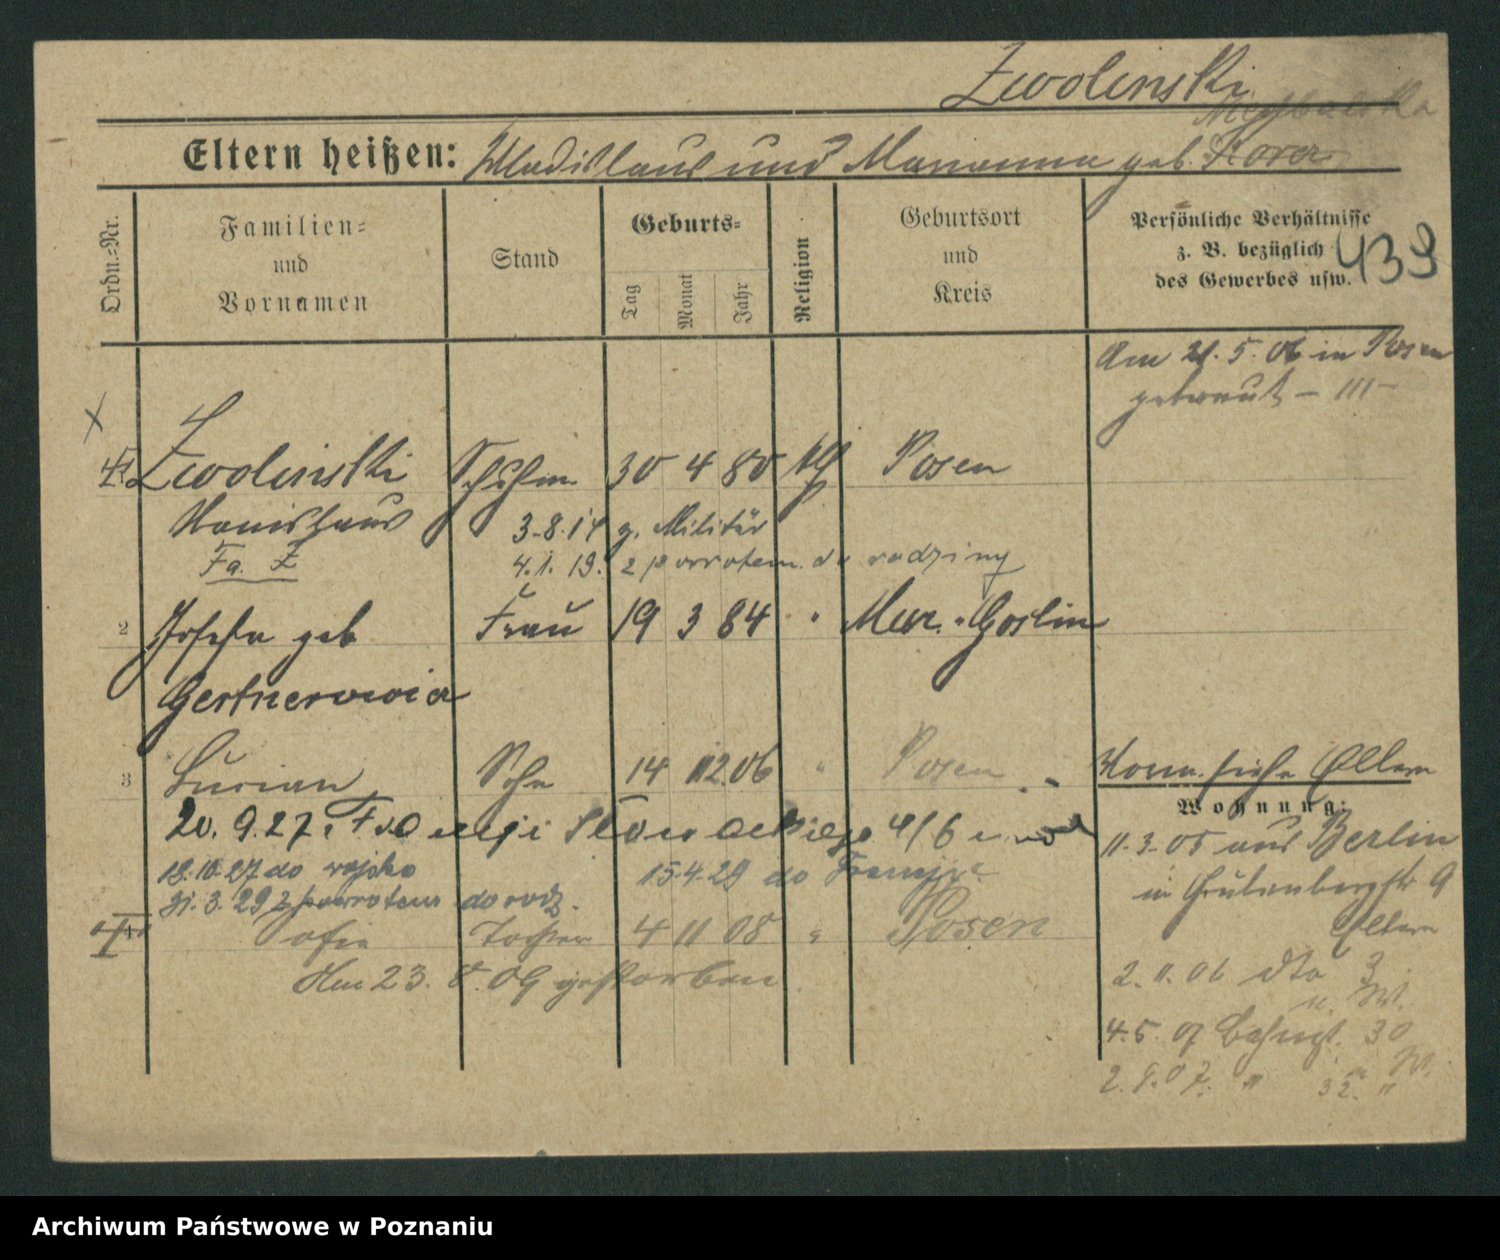 Zwolinski
Eltern heißen: Wladislaus und Marianna geb.
Ordn.=Nr.
Familien=
und
Vornamen
Stand
Geburts=
Tag
Monat
Jahr
Religion
Geburtsort
und
Kreis
Persönliche Verhältnisse
z. B. bezüglich
des Gewerbes usw.
439
Am 21. 5. 06 in Posen
getraut – III –
Zwolinski 30 4 80 kth Posen
Stanislaus 3.8.14 z. Militär
Fa. Z 4.1.19. z powrotem do rodziny
2 Josefa geb Frau 19 3 84 " Mur.-Goslin
3 Lucian Sohn 14 12 06 " Posen
20. 9. 27. Francji 4/6
18.10.27 do wojska 15.4.29 do Francji
31.3.29 z powrotem do rodz.
4 Tochter 4 11 08 " Posen
Am 23. 8. 09 gestorben.
Eltern
Wohnung:
11.3.05 aus Berlin
in 9
Eltern
2.11.06 dto 3
4.5.07 30
2.8.07. " 32. "
Archiwum Państwowe w Poznaniu